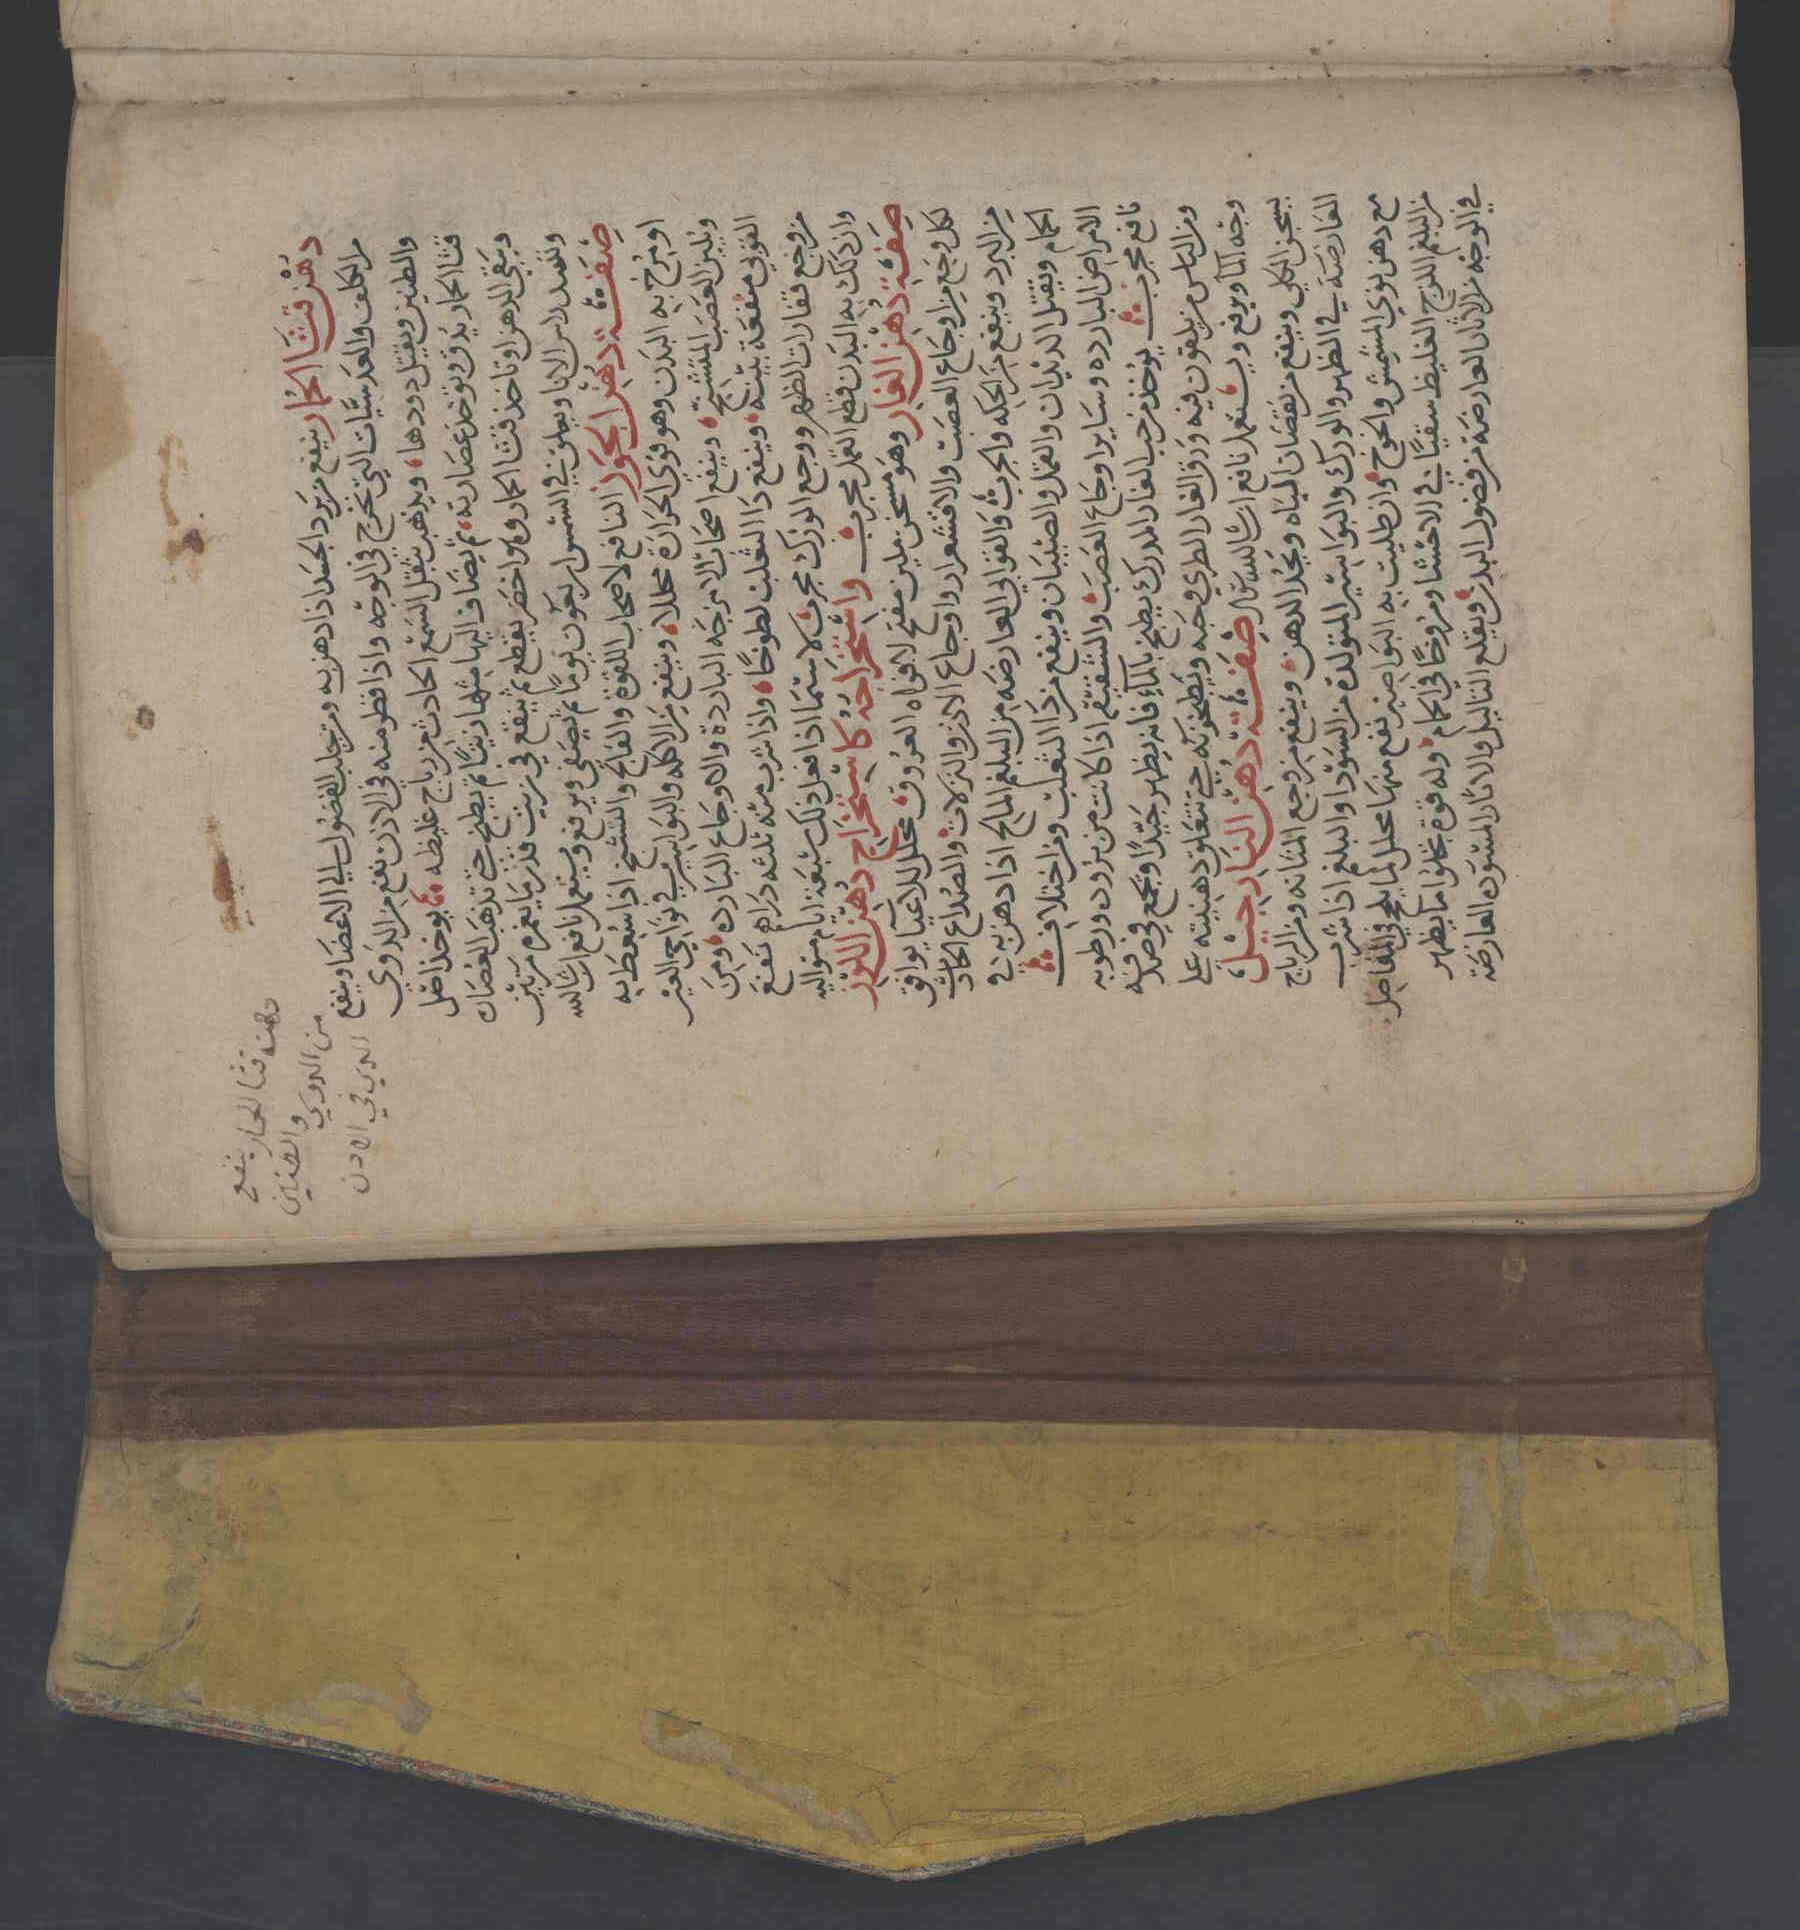 دهن قثا الحمار ينفع من برد الجسد اذا دهن به ومن جلب الفضول الي الاعضا وينفع
من الكلف والعدسيات التي تخرج في الوجه واذا قطر منه في الاذن نفع من الدوي
والطنين ويقتل دودها ويذهب بثقل السمع الحادث من رياح غليظه يوخذ اصل
قثا الحمار يدق وتوخذ عصارته ثم يضاف اليها مثلها زيتا ثم يطبخ حتي تذهب العصاره
ويبقي الدهن او تاخذ قثا الحمار وهو اخضر يقطع ثم ينقع في زيت قدر ما يغمره مرتين
وتسد راس الانا ويعلق في الشمس اربعون يوما ثم يصفي ويرفع ويستعمل نافع ان شا الله
صفة دهن الجوز النافع لاصحاب اللقوة والفالج والتشنج اذا سعط به
او مرخ به البدن وهو قوي الحرارة محللا وينفع من الاكله والبواسير في نواحي العين
ويلين العصب المتشنج وينفع اصحاب الامزجه البارده والاوجاع البارده ومن
القوبي منفعة بينه وينفع دا الثعلب لطوخا واذا شرب منه ثلثه دراهم نفع
من وجع فقارات الظهر ووجع الورك مجرب لا سيما اذا فعل ذلك سبعة ايام متواليه
وان دلك به البدن قطع القمل مجرب واستخراجه كاستخراج دهن اللوز
صفة دهن الغار وهو مسخن ملين مفتح لافواه العروق محلل للاعيا يوافق
لكل وجع من اوجاع العصب والاقشعرار واوجاع الاذن والنزلات والصداع الحادث
من البرد وينفع من الحكه والجرب والقوابي العارضه من البلغم المالح اذا دهن به في
الحمام ويقتل الديدان والقمل والصيبان وينفع من دا الثعلب ومن اختلاف
الامراض البارده وساير اوجاع العصب والشقيقه اذا كانت من برودة ورطوبه
نافع مجرب يوخذ من حب الغار المدرك يطبخ بالماء فانه يظهر جيدا ويجمع في صدفه
ومن الناس من يلقون فيه ورق الغار الطري وحبه ويطبخونه حتي تتعلق دهنيته علي
وجه الما ويرفع ويستعمل نافع ان شا الله تعالي صفة دهن النارجيل
يسخن الكلي وينفع من نقصان الباه ويحد الذهن وينفع من وجع المثانه ومن الرياح
العارضه في الظهر والورك والبواسير المتولده من السودا والبلغم اذا شرب
مع دهن نوي المشمش والخوخ وان طليت به البواصير نفع منها محلل لما يلحج في المفاصل
من البلغم اللزج الغليظ سقيا في الاحشا ومروخا في الحمام وله قوة تجلوا ما يظهر
في الوجه من الاثار العارضه من فضول البدن ويقلع الثاليل والاثار السود العارضة
دهنه قثا الحمار ينفع
من الدوي والطنين
الدي في الادن